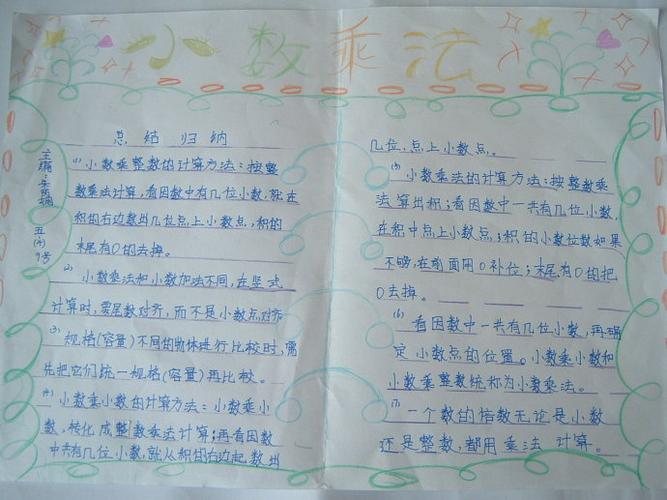 小数乘法
总结归纳
(1)小数乘整数的计算方法：按整
数乘法计算，看因数中有几位小数，就在
积的右边数出几位点上小数点，积的
末尾有0的去掉。
(2) 小数乘法和小数加法不同，在竖式
计算时，要尾数对齐，而不是小数点对齐
(3) 规格(容量)不同的物体进行比较时，需
先把它们统一规格(容量)再比较。
(4) 小数乘小数的计算方法：小数乘小
数，转化成整数乘法计算；再看因数
中共有几位小数，就从积的右边起数出
主编：
五(4)
9号
几位，点上小数点。
(5) 小数乘法的计算方法：按整数乘
法算出积；看因数中一共有几位小数，
在积中点上小数点；积的小数位数如果
不够，在前面用0补位；末尾有0的把
0去掉。
(6) 看因数中一共有几位小数，再确
定小数点的位置。小数乘小数和
小数乘整数统称为小数乘法。
(7) 一个数的倍数无论是小数
还是整数，都用乘法计算。